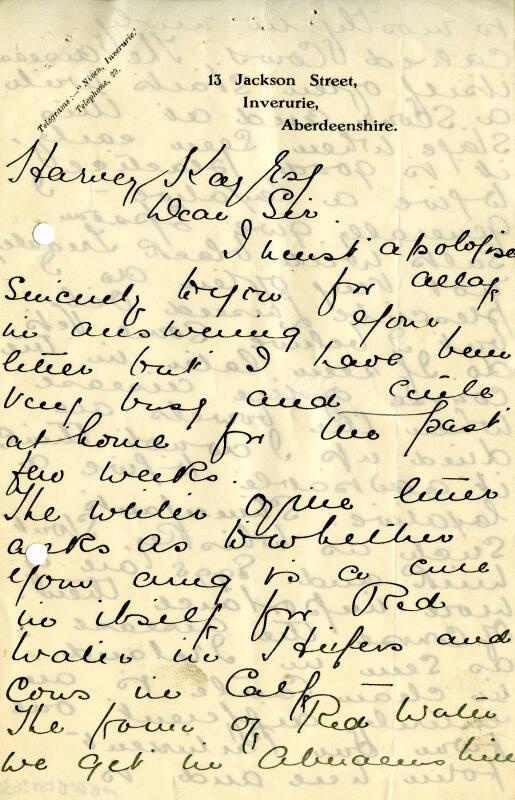 Telegrams :— "Niven, Inverurie."
Telephone, 29.
13 Jackson Street,
Inverurie,
Aberdeenshire.
Harvey Kay Esq
Dear Sir.
I must apologise
sincerely to you for delay
in answering your
letter but I have been
very busy and
at home for the past
few weeks.
The writer of the letter
asks as to whether
your drug is a cure
in itself for Red
Water in Heifers and
Cows in Calf —
The form of Red Water
we get in Aberdeenshire